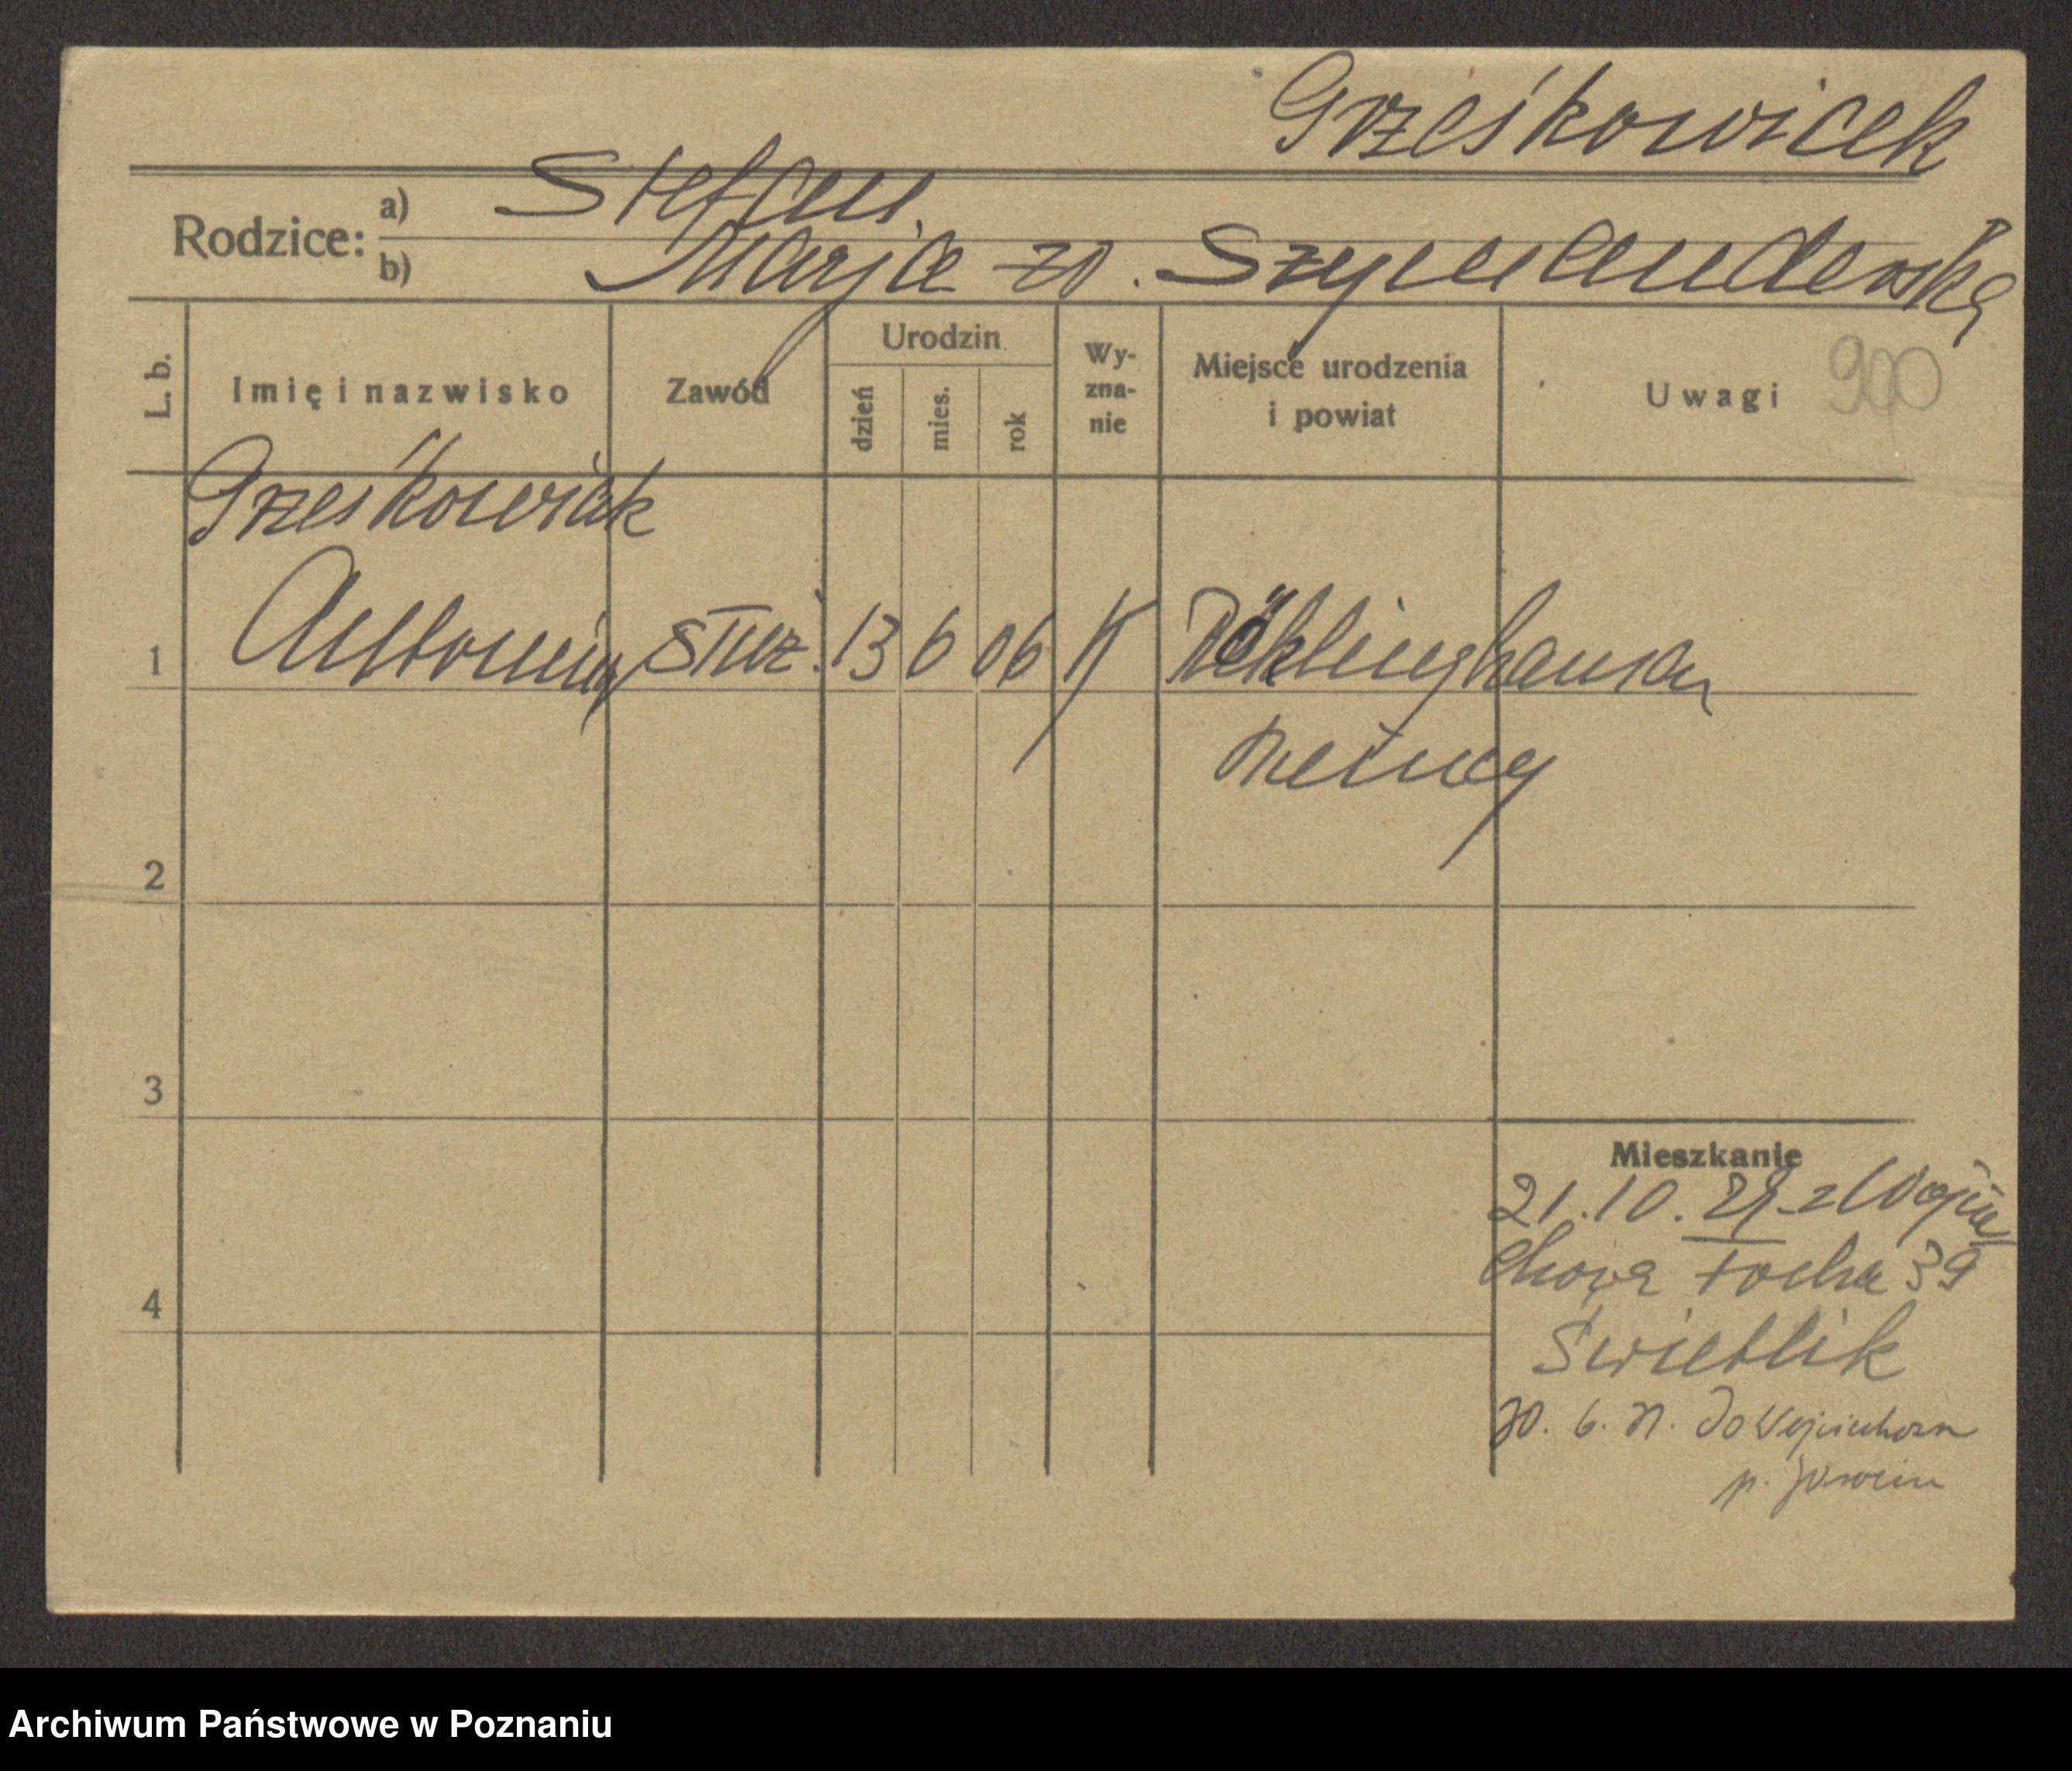 Grześkowiak
Rodzice: a) Stefan
b) Marja zd. Szymanderska
L. b.
Imię i nazwisko
Zawód
Urodzin
dzień
mies.
rok
Wy-
zna-
nie
Miejsce urodzenia
i powiat
Uwagi 900
Grześkowiak
1 Antonina służ. 13 6 06 K Röhlinghausen
Niemcy
2
3
Mieszkanie
21.10. 29 z Wojcie
chowa Focha 39
4
Świetlik
30. 6. 31. do Wojciechowa
p. Jarocin
Archiwum Państwowe w Poznaniu